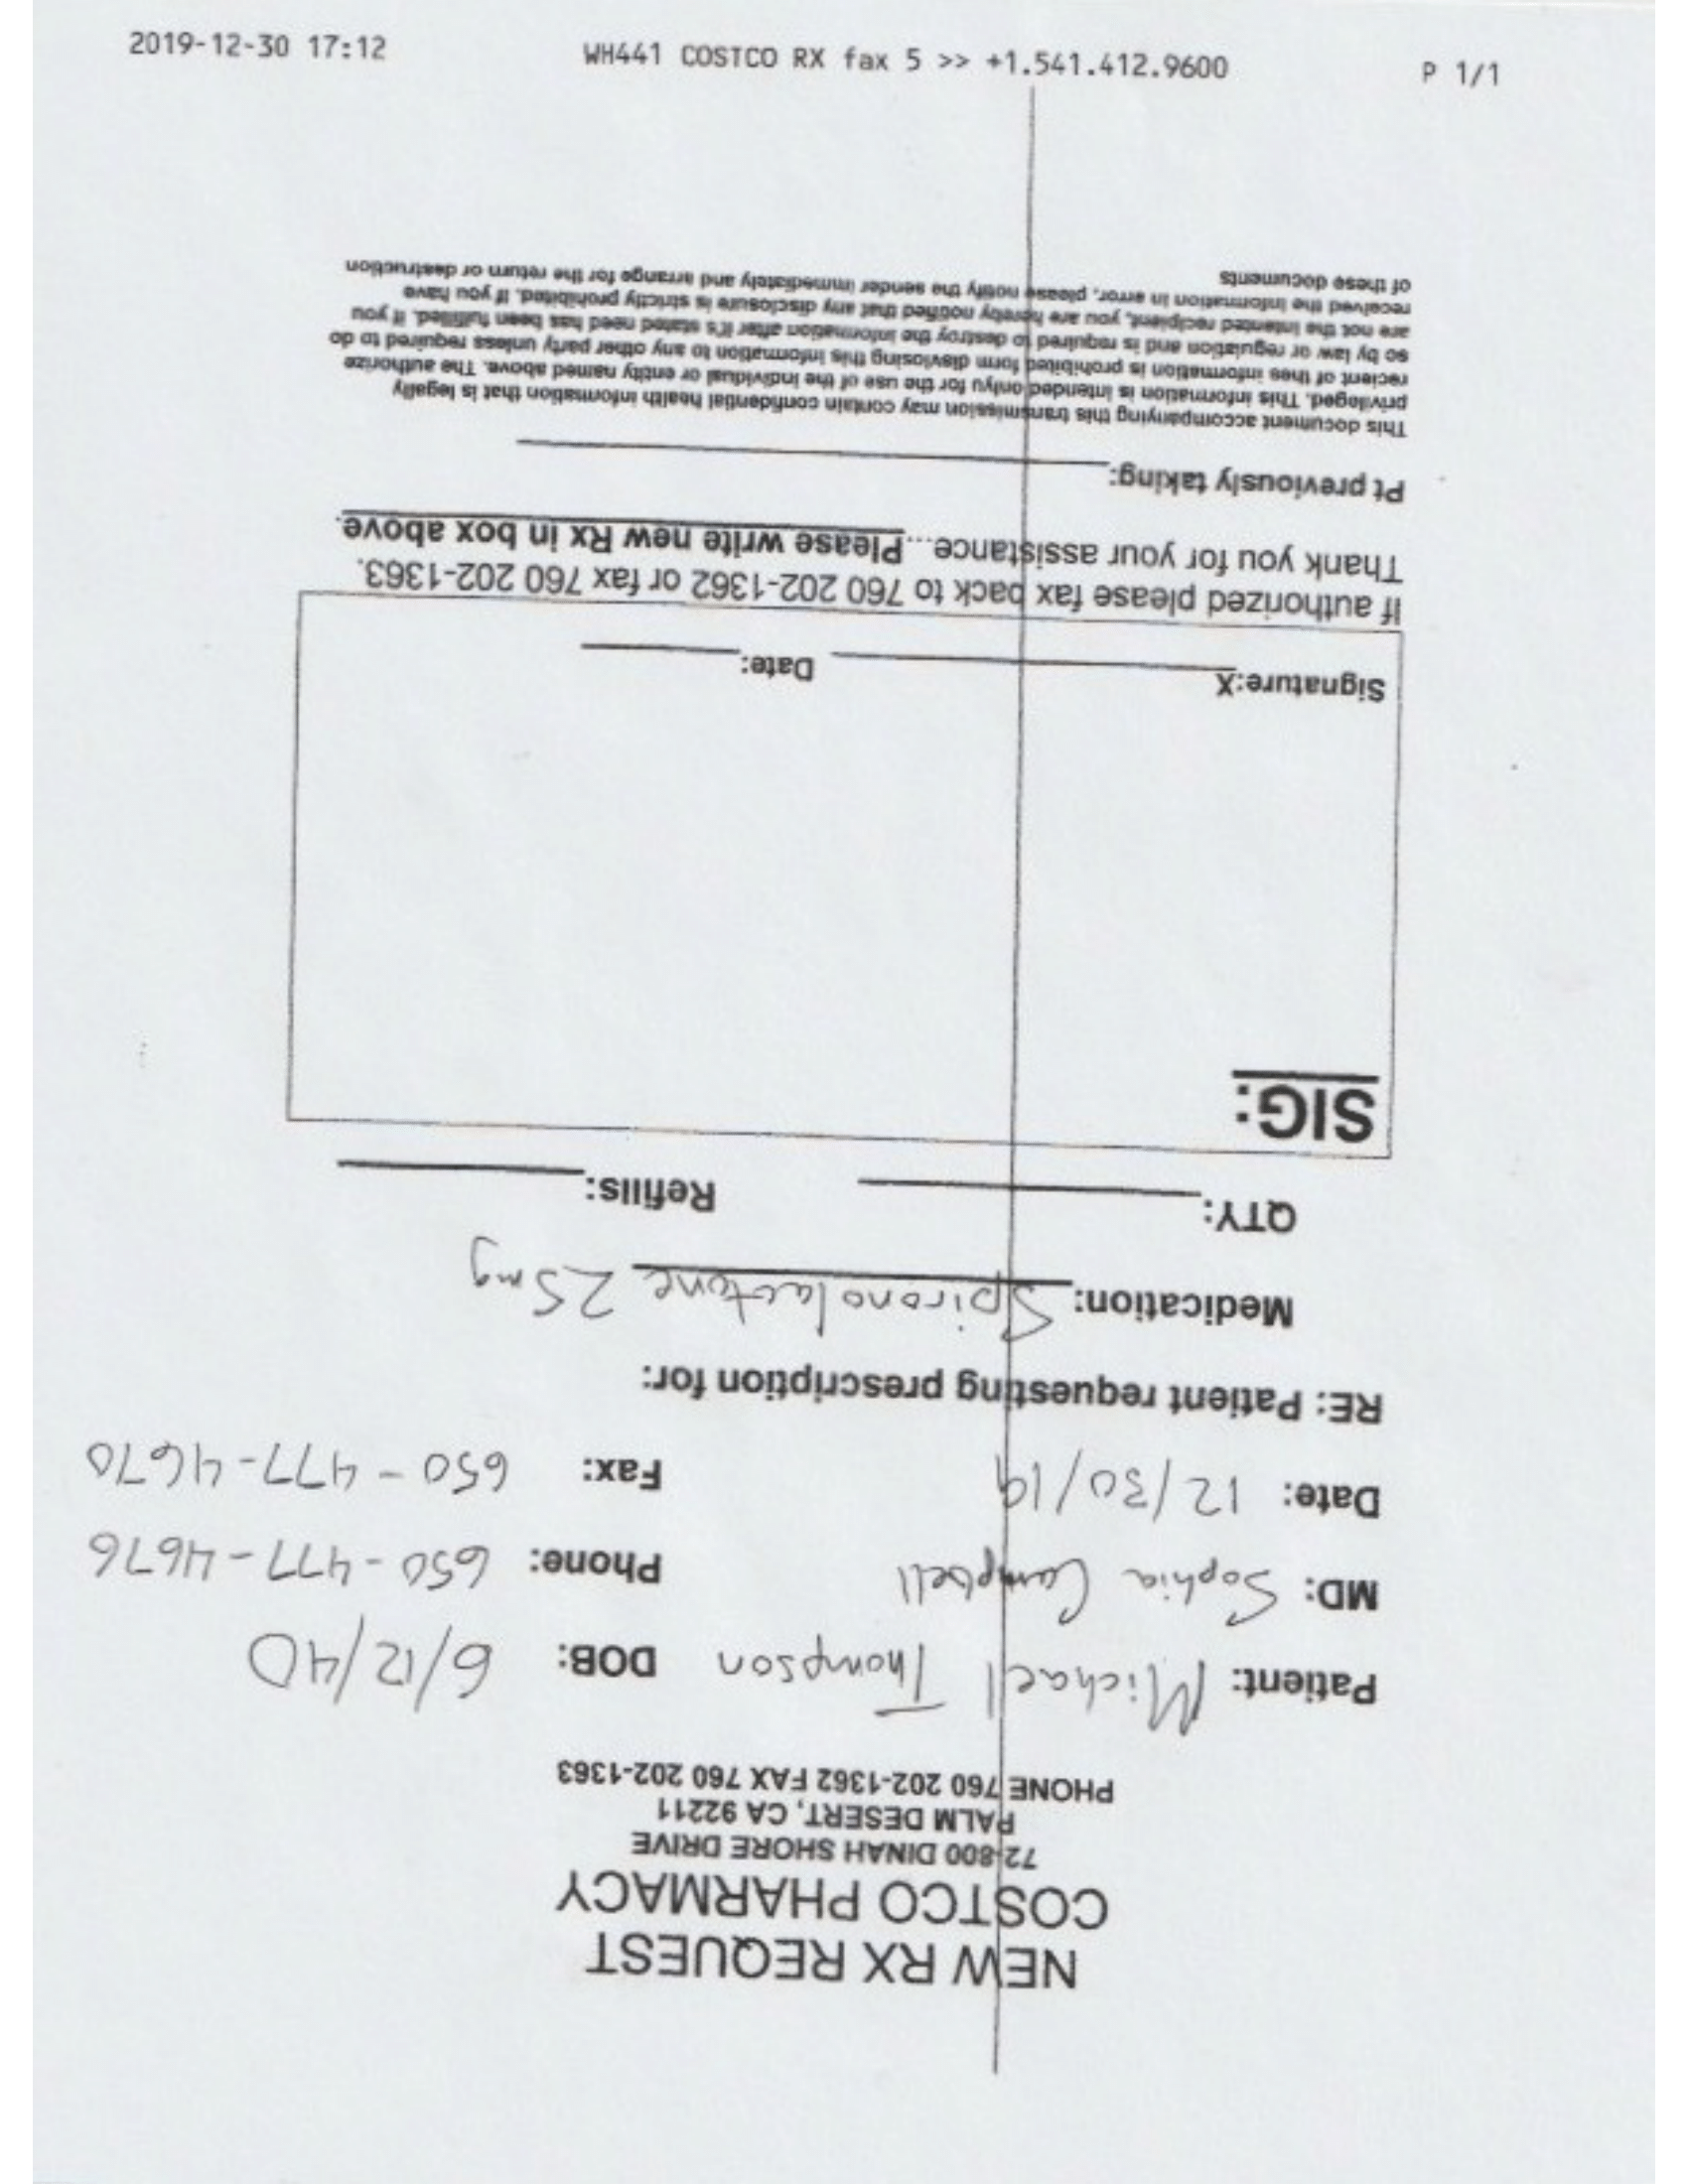 2019-12-30 17:12 WH441 COSTCO RX fax 5 >> +1.541.412.9600 P 1/1
NEW RX REQUEST
COSTCO PHARMACY
72-800 DINAH SHORE DRIVE
PALM DESERT, CA 92211
PHONE 760 202-1362 FAX 760 202-1363
Patient: Michael Thompson DOB: 6/12/40
MD: Sophia Campbell Phone: 650-477-4676
Date: 12/30/19 Fax: 650-477-4670
RE: Patient requesting prescription for:
Medication: Spironolactone 25mg
QTY: Refills:
SIG:
Signature:X Date:
If authorized please fax back to 760 202-1362 or fax 760 202-1363.
Thank you for your assistance...Please write new Rx in box above.
Pt previously taking:
This document accompanying this transmission may contain confidential health information that is legally
privileged. This information is intended onlyu for the use of the individual or entity named above. The authorize
recient of thes information is prohibited form disvlosing this information to any other party unless required to do
so by law or regulation and is required to destroy the information after it's stated need has been fulfilled. If you
are not the intented recipient, you are hereby notified that any disclosure is strictly prohibited. If you have
received the information in error, please notify the sender immediately and arrange for the return or destruction
of these documents